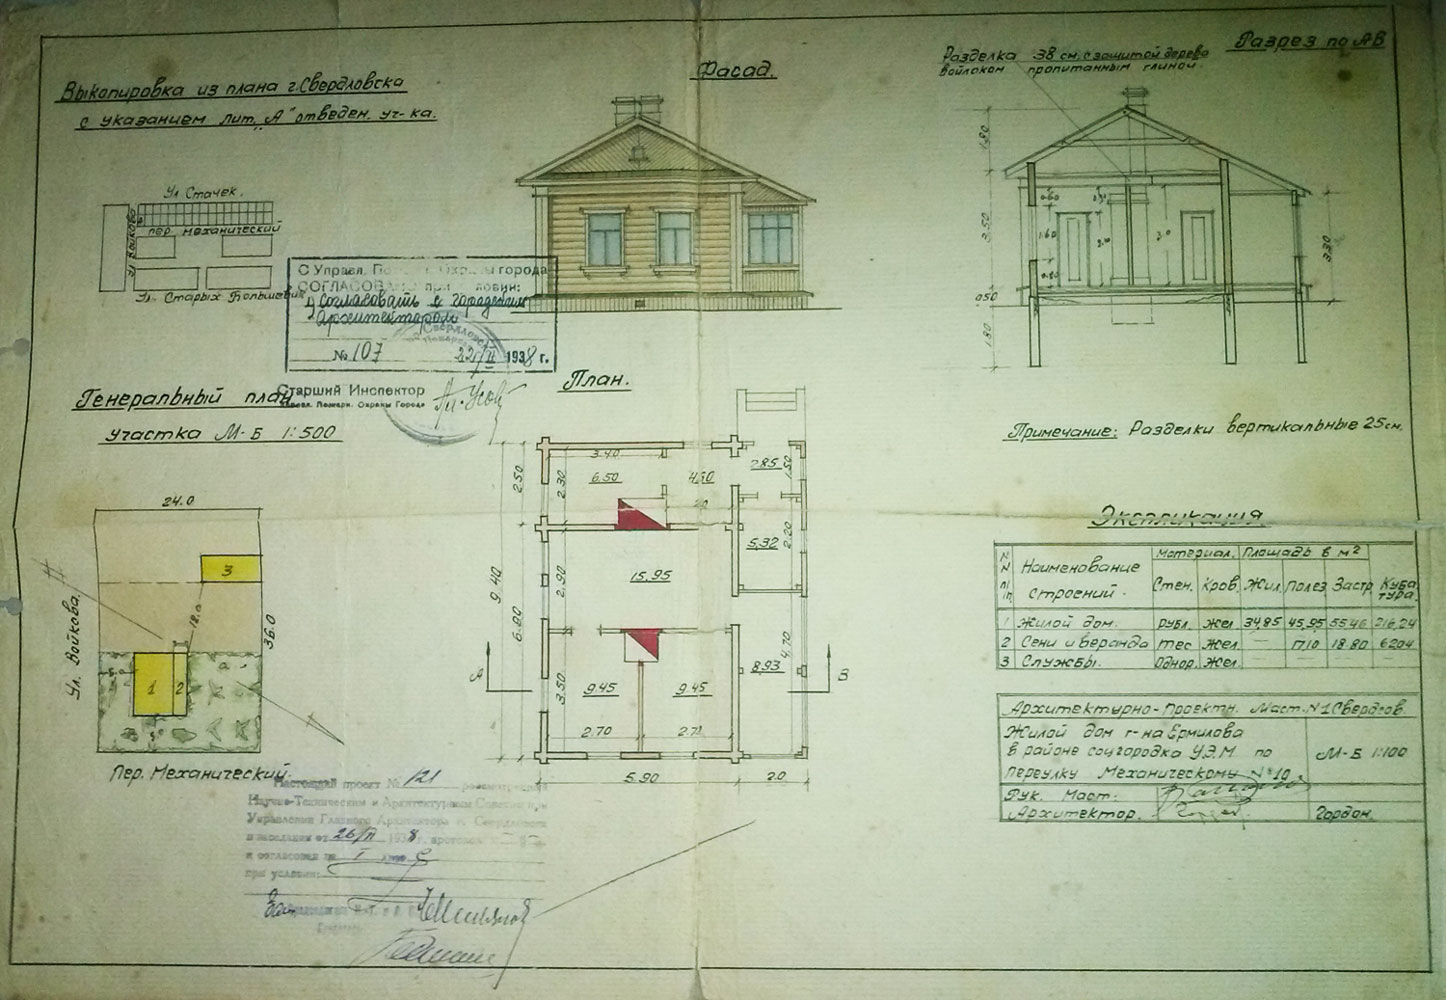 Выкопировка из плана г. Свердловска
с указанием лит. „А" отведен. уч-ка.
Фасад.
Разделка 38 см. с защитой дерева
войлоком пропитанным глиной.
Разрез по АВ
ул. Стачек.
пер. Механический
ул. Войкова
ул. Старых Большевик
С Управл. Охраны города
СОГЛАСОВАНО при условии:
1) Согласовать с городским
Архитектором
№ 107 22/II 1938 г.
Старший Инспектор
Управл. Пожарн. Охраны Города
1.80
3.50
0.50
1.80
0.60
1.60
0.80
3.30
Генеральный план
участка М-Б 1:500
План.
Примечание: Разделки вертикальные 25 см.
24.0
36.0
12.0
1
2
3
ул. Войкова.
Пер. Механический.
3.40
6.50
4.50
2.85
1.50
2.50
2.30
5.32
2.20
9.40
6.90
2.90
15.95
3.50
9.45
9.45
8.93
4.70
2.70
2.71
5.90
2.0
А
В
Экспликация
N N п/п
Наименование строений.
Материал. Площадь в м²
Стен. Кров. Жил. Полез Застр. Кубатура.
1 Жилой дом. рубл. жел 34,85 45,95 55.46 216,24
2 Сени и веранда тес жел — 17.10 18.80 62.04
3 Службы. однор. жел.
Архитектурно-Проектн. Маст. N1 Свердгов.
Жилой дом г-на Ермилова
в районе соцгородка У.З.М по
переулку Механическому N°10
М-Б 1:100
Рук. Маст:
Архитектор. Гордон.
Настоящий проект № 121 рассмотренный
Научно-Техническим и Архитектурным Советом при
Управлении Главного Архитектора г. Свердловска
в заседании от 26/II 1938 г. протокол
и согласован
при условии: